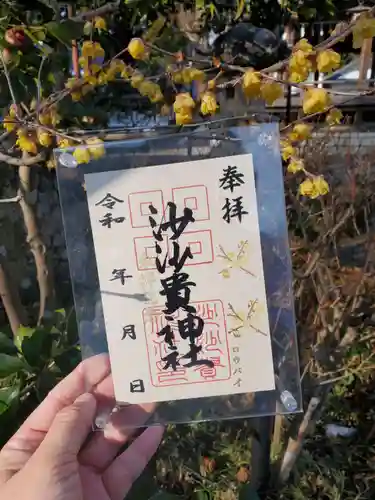 奉拝
沙沙貴神社
令和 年 月 日
ロウバイ